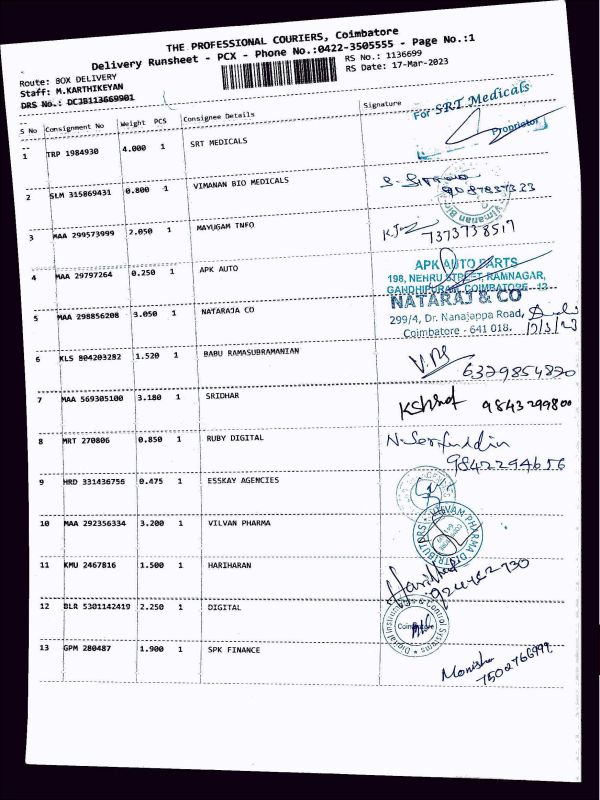 THE PROFESSIONAL COURIERS, Coimbatore
Delivery Runsheet - PCX - Phone No.:0422-3505555 - Page No.:1
Route: BOX DELIVERY
RS No.: 1136699
Staff: M.KARTHIKEYAN
RS Date: 17-Mar-2023
DRS No.: DCJB113669901
S No Consignment No Weight PCS Consignee Details Signature
For SRT Medicals
1 TRP 1984930 4.000 1 SRT MEDICALS
Proprietor
2 SLM 315869431 0.800 1 VIMANAN BIO MEDICALS
3 MAA 299573999 2.050 1 MAYUGAM TNFO
7373738517
4 MAA 29797264 0.250 1 APK AUTO
APK AUTO PARTS
198, NEHRU STREET, RAMNAGAR,
GANDHIPURAM, COIMBATORE - 13
5 MAA 298856208 3.050 1 NATARAJA CO
NATARAJ & CO
299/4, Dr. Nanajappa Road,
Coimbatore - 641 018. 17/3/23
6 KLS 804203282 1.520 1 BABU RAMASUBRAMANIAN
6379854820
7 MAA 569305100 3.180 1 SRIDHAR
9843299800
8 MRT 270806 0.850 1 RUBY DIGITAL
9842294656
9 HRD 331436756 0.475 1 ESSKAY AGENCIES
10 MAA 292356334 3.200 1 VILVAN PHARMA
11 KMU 2467816 1.500 1 HARIHARAN
12 BLR 5301142419 2.250 1 DIGITAL
Digital Instruments & Control Systems
Coimbatore
13 GPM 280487 1.900 1 SPK FINANCE
Monisha
7502766999